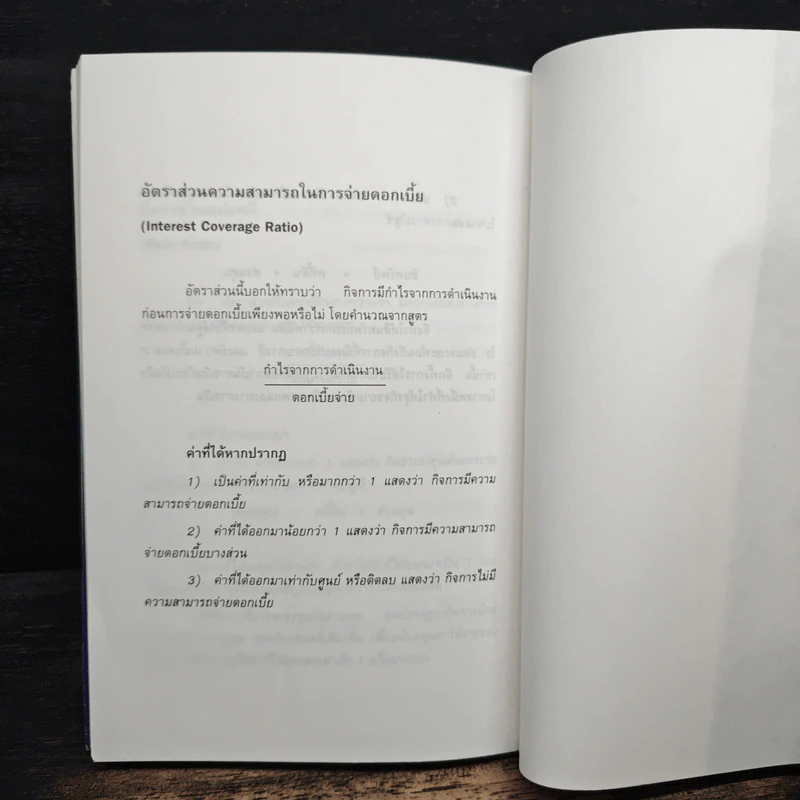 อัตราส่วนความสามารถในการจ่ายดอกเบี้ย
(Interest Coverage Ratio)
อัตราส่วนนี้บอกให้ทราบว่า กิจการมีกำไรจากการดำเนินงาน
ก่อนการจ่ายดอกเบี้ยเพียงพอหรือไม่ โดยคำนวณจากสูตร
กำไรจากการดำเนินงาน
ดอกเบี้ยจ่าย
ค่าที่ได้หากปรากฏ
1) เป็นค่าที่เท่ากับ หรือมากกว่า 1 แสดงว่า กิจการมีความ
สามารถจ่ายดอกเบี้ย
2) ค่าที่ได้ออกมาน้อยกว่า 1 แสดงว่า กิจการมีความสามารถ
จ่ายดอกเบี้ยบางส่วน
3) ค่าที่ได้ออกมาเท่ากับศูนย์ หรือติดลบ แสดงว่า กิจการไม่มี
ความสามารถจ่ายดอกเบี้ย